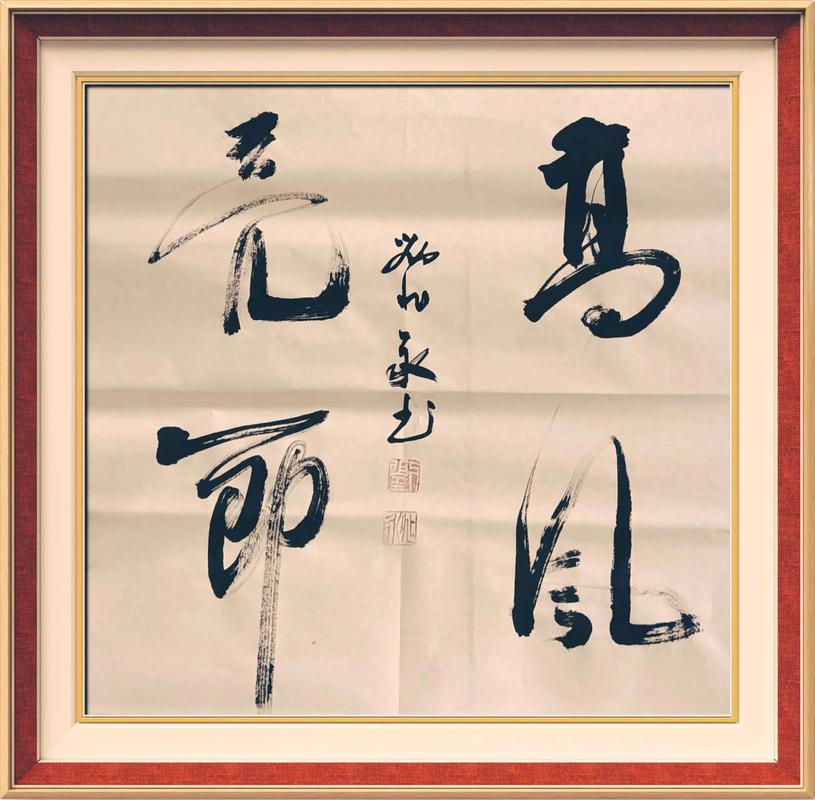 高風
亮節
永书